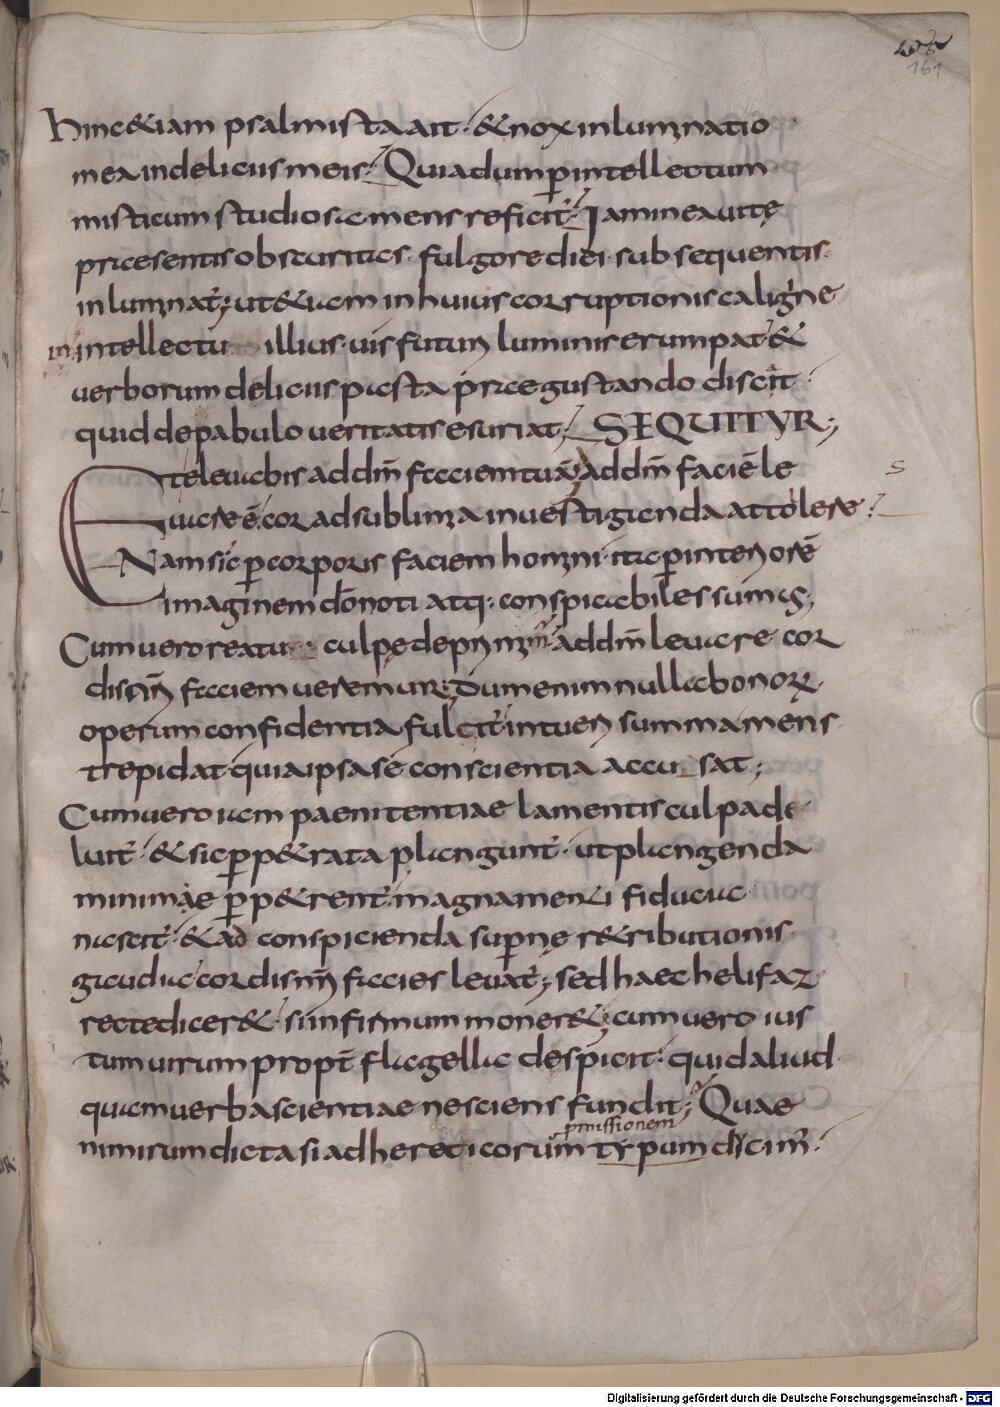 161
hinc&iam psalmista ait · &nox inlumnatio
mea indeliciis meis; Quia dum p̱ intellectum
misticum studiosa mens reficit̃; Iam in ea uitę
praesentis obscuritas · fulgore diei subsequentis
inluminat̃; ut&iam in huius corruptionis caligine
in intellectu illius · uis futuri luminis erumpat &
uerborum deliciis pasta praegustando discat
quid de pabulo ueritatis esuriat; SEQUITUR;
Et eleuabis ad dm̄ faciem tuā; Ad dm̄ faciē le
uare ē cor ad sublima inuestiganda attolere;
Nam sic p̱ corporis faciem homini · ita p̱ interiorē
imaginem dō noti atq; conspicabiles sumus;
Cum uero reatu culpę deprimim̄ ad dm̄ leuare cor
dis nr̄i faciem ueremur; Dum enim nulla bonorum
operum confidentia fulcit̃ intueri summa mens
trepidat quia ipsa se conscientia accusat;
Cum uero iam paenitentiae lamentis culpa de
luit̃ · & sic p̱p&rata plangunt̃ · ut plangenda
minimae p̱p&rent̃ magna menti fiducia
nascit̃ · & ad conspicienda sup̱nę r&ributionis
gaudia cordis nr̄i facies leuat̃; sed haec helifaz
recte dicer& · si infirmum moner&; cum uero ius
tum uirum propt̃ flagella despicit · quid aliud
quam uerba scientiae nesciens fundit; Quae
pmissionem
nimirum dicta si ad hereticorum typum ducim̃;
Digitalisierung gefördert durch die Deutsche Forschungsgemeinschaft - DFG